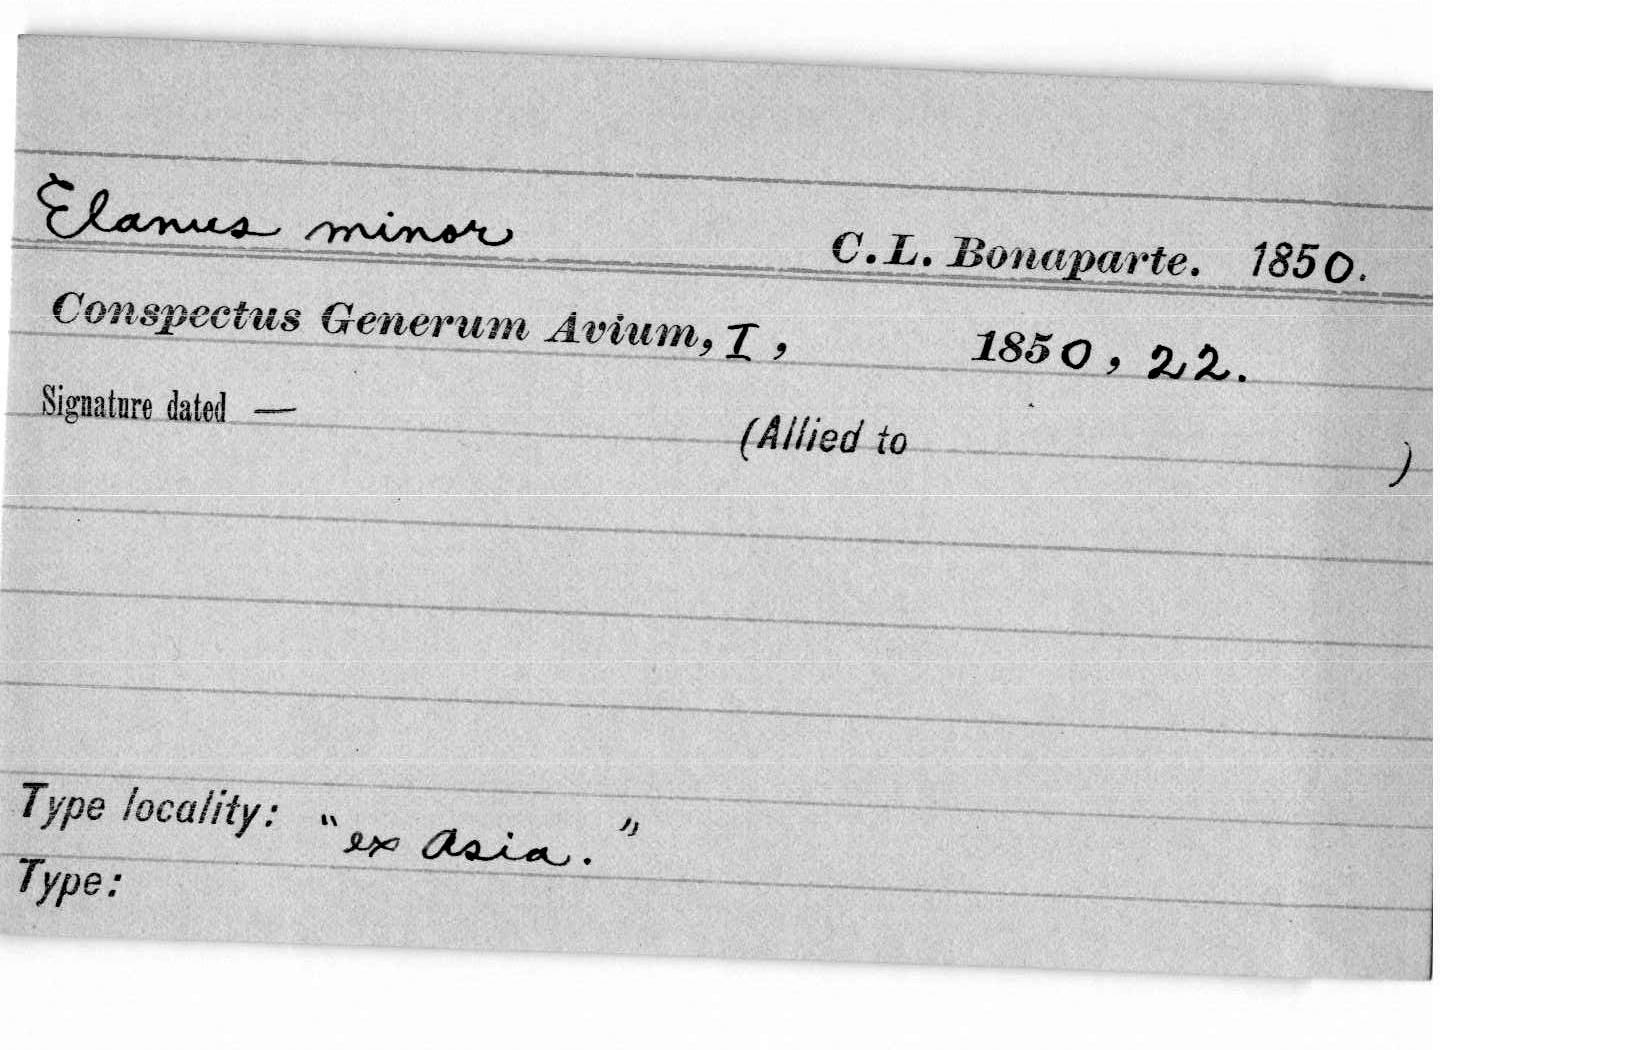 Elanus minor C. L. Bonaparte. 1850.
Conspectus Generum Avium, I, 1850, 22.
Signature dated —
(Allied to )
Type locality: "ex Asia."
Type: